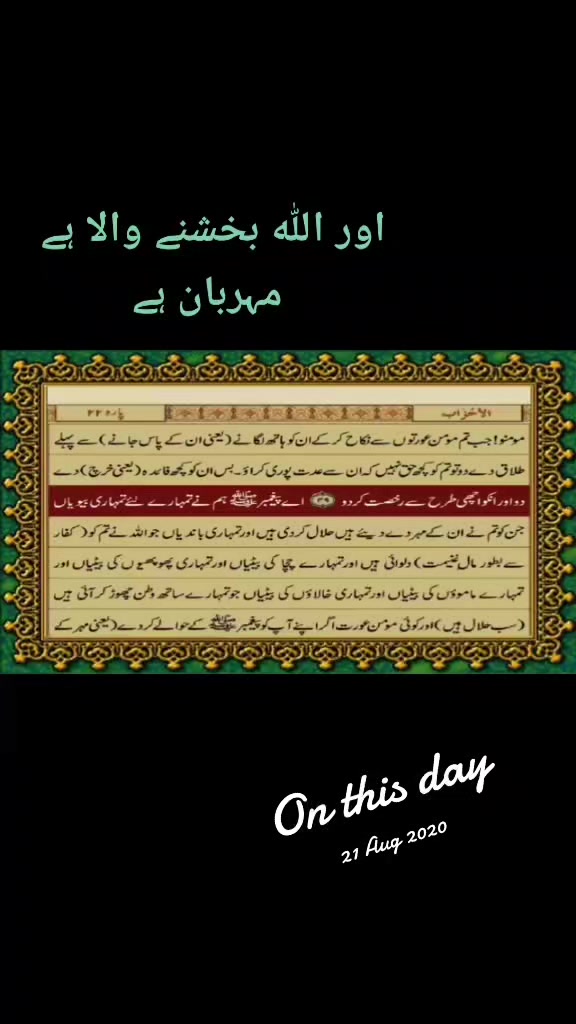 اور اللہ بخشنے والا ہے
مہربان ہے
الاحزاب
پارہ ۲۲
مومنو! جب تم مومن عورتوں سے نکاح کر کے ان کو ہاتھ لگانے (یعنی ان کے پاس جانے) سے پہلے
طلاق دے دو تو تم کو کچھ حق نہیں کہ ان سے عدت پوری کراؤ۔ بس ان کو کچھ فائدہ (یعنی خرچ) دے
دو اور انکو اچھی طرح سے رخصت کردو ﴿۴۹﴾ اے پیغمبر ﷺ ہم نے تمہارے لئے تمہاری بیویاں
جن کو تم نے ان کے مہر دے دیئے ہیں حلال کردی ہیں اور تمہاری باندیاں جو اللہ نے تم کو (کفار
سے بطور مال غنیمت) دلوائی ہیں اور تمہارے چچا کی بیٹیاں اور تمہاری پھوپھیوں کی بیٹیاں اور
تمہارے ماموؤں کی بیٹیاں اور تمہاری خالاؤں کی بیٹیاں جو تمہارے ساتھ وطن چھوڑ کر آئی ہیں
(سب حلال ہیں) اور کوئی مومن عورت اگر اپنے آپ کو پیغمبر ﷺ کے حوالے کردے (یعنی مہر کے
On this day
21 Aug 2020